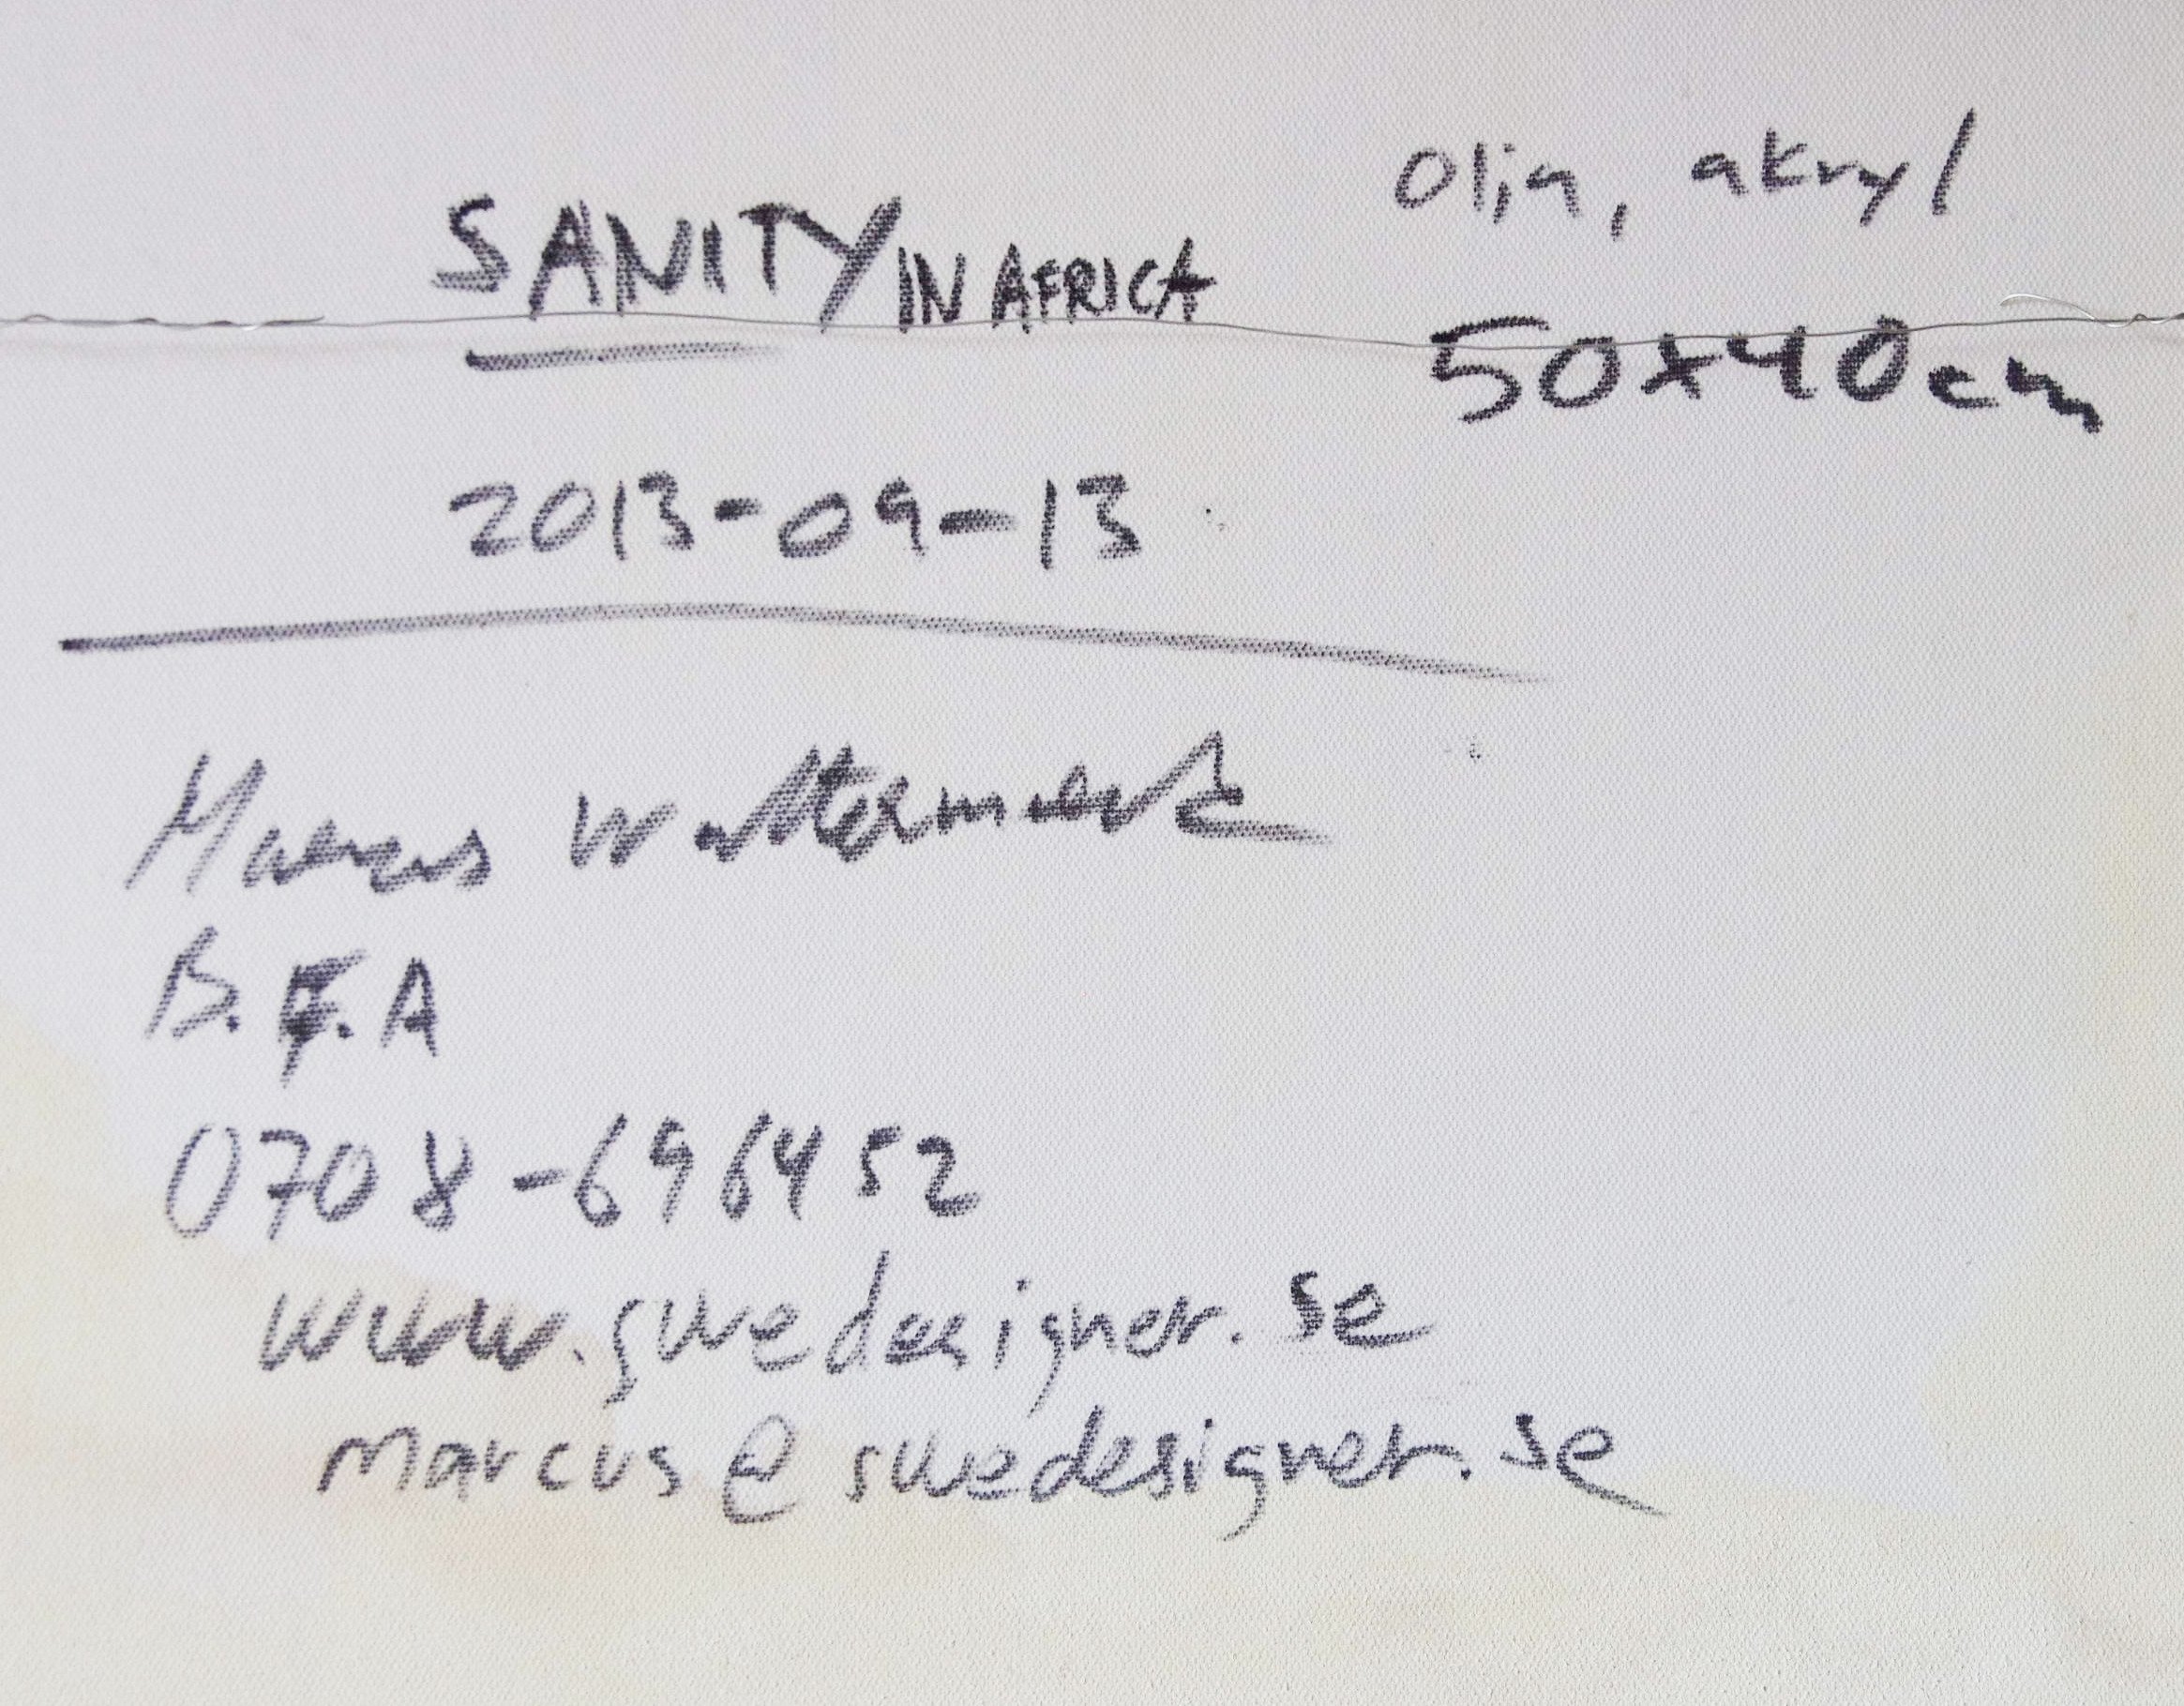 olja, akryl
SANITY IN AFRICA
50x40cm
2013-09-13
Marcus
B.F.A
0708-696452
www.swedesigner.se
marcus@swedesigner.se